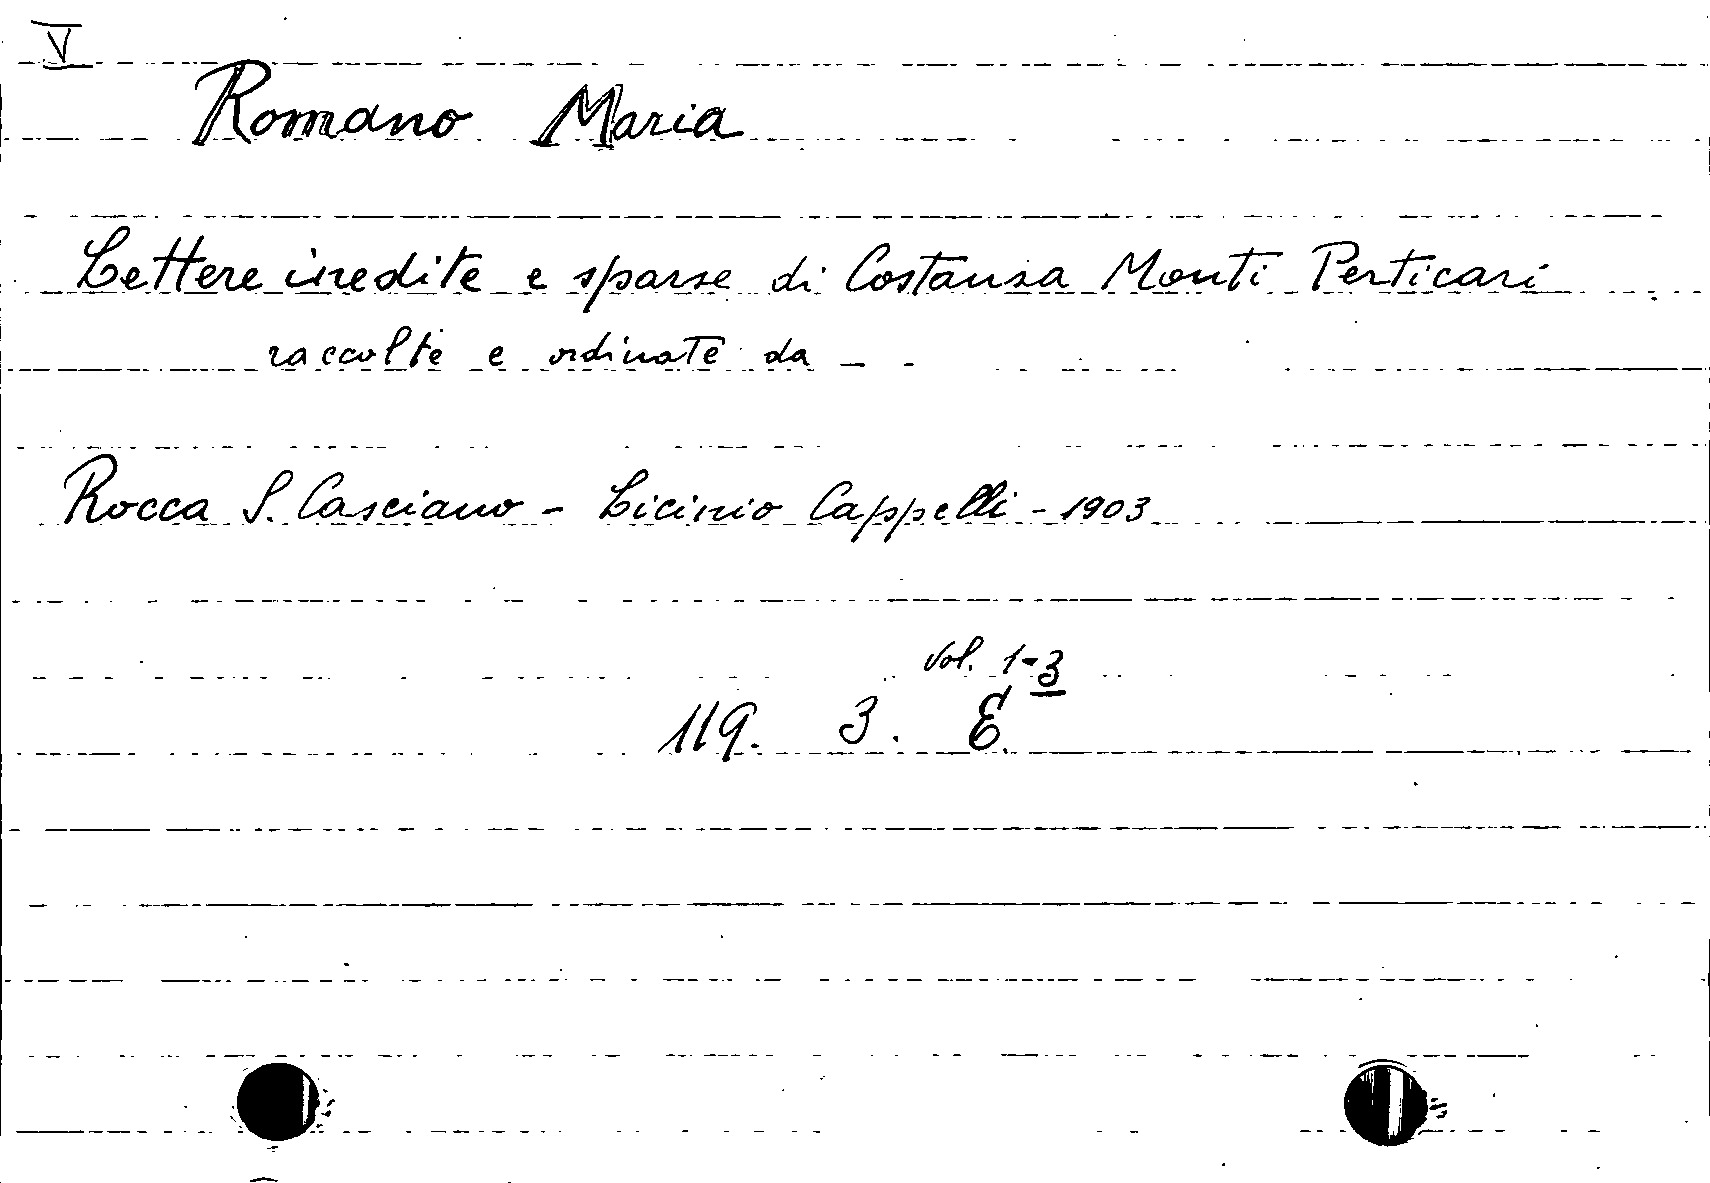 V
Romano Maria
Lettere inedite e sparse di Costanza Monti Perticari
raccolte e ordinate da - -
Rocca S. Casciano - Licinio Cappelli - 1903
Vol. 1-3
119. 3. E